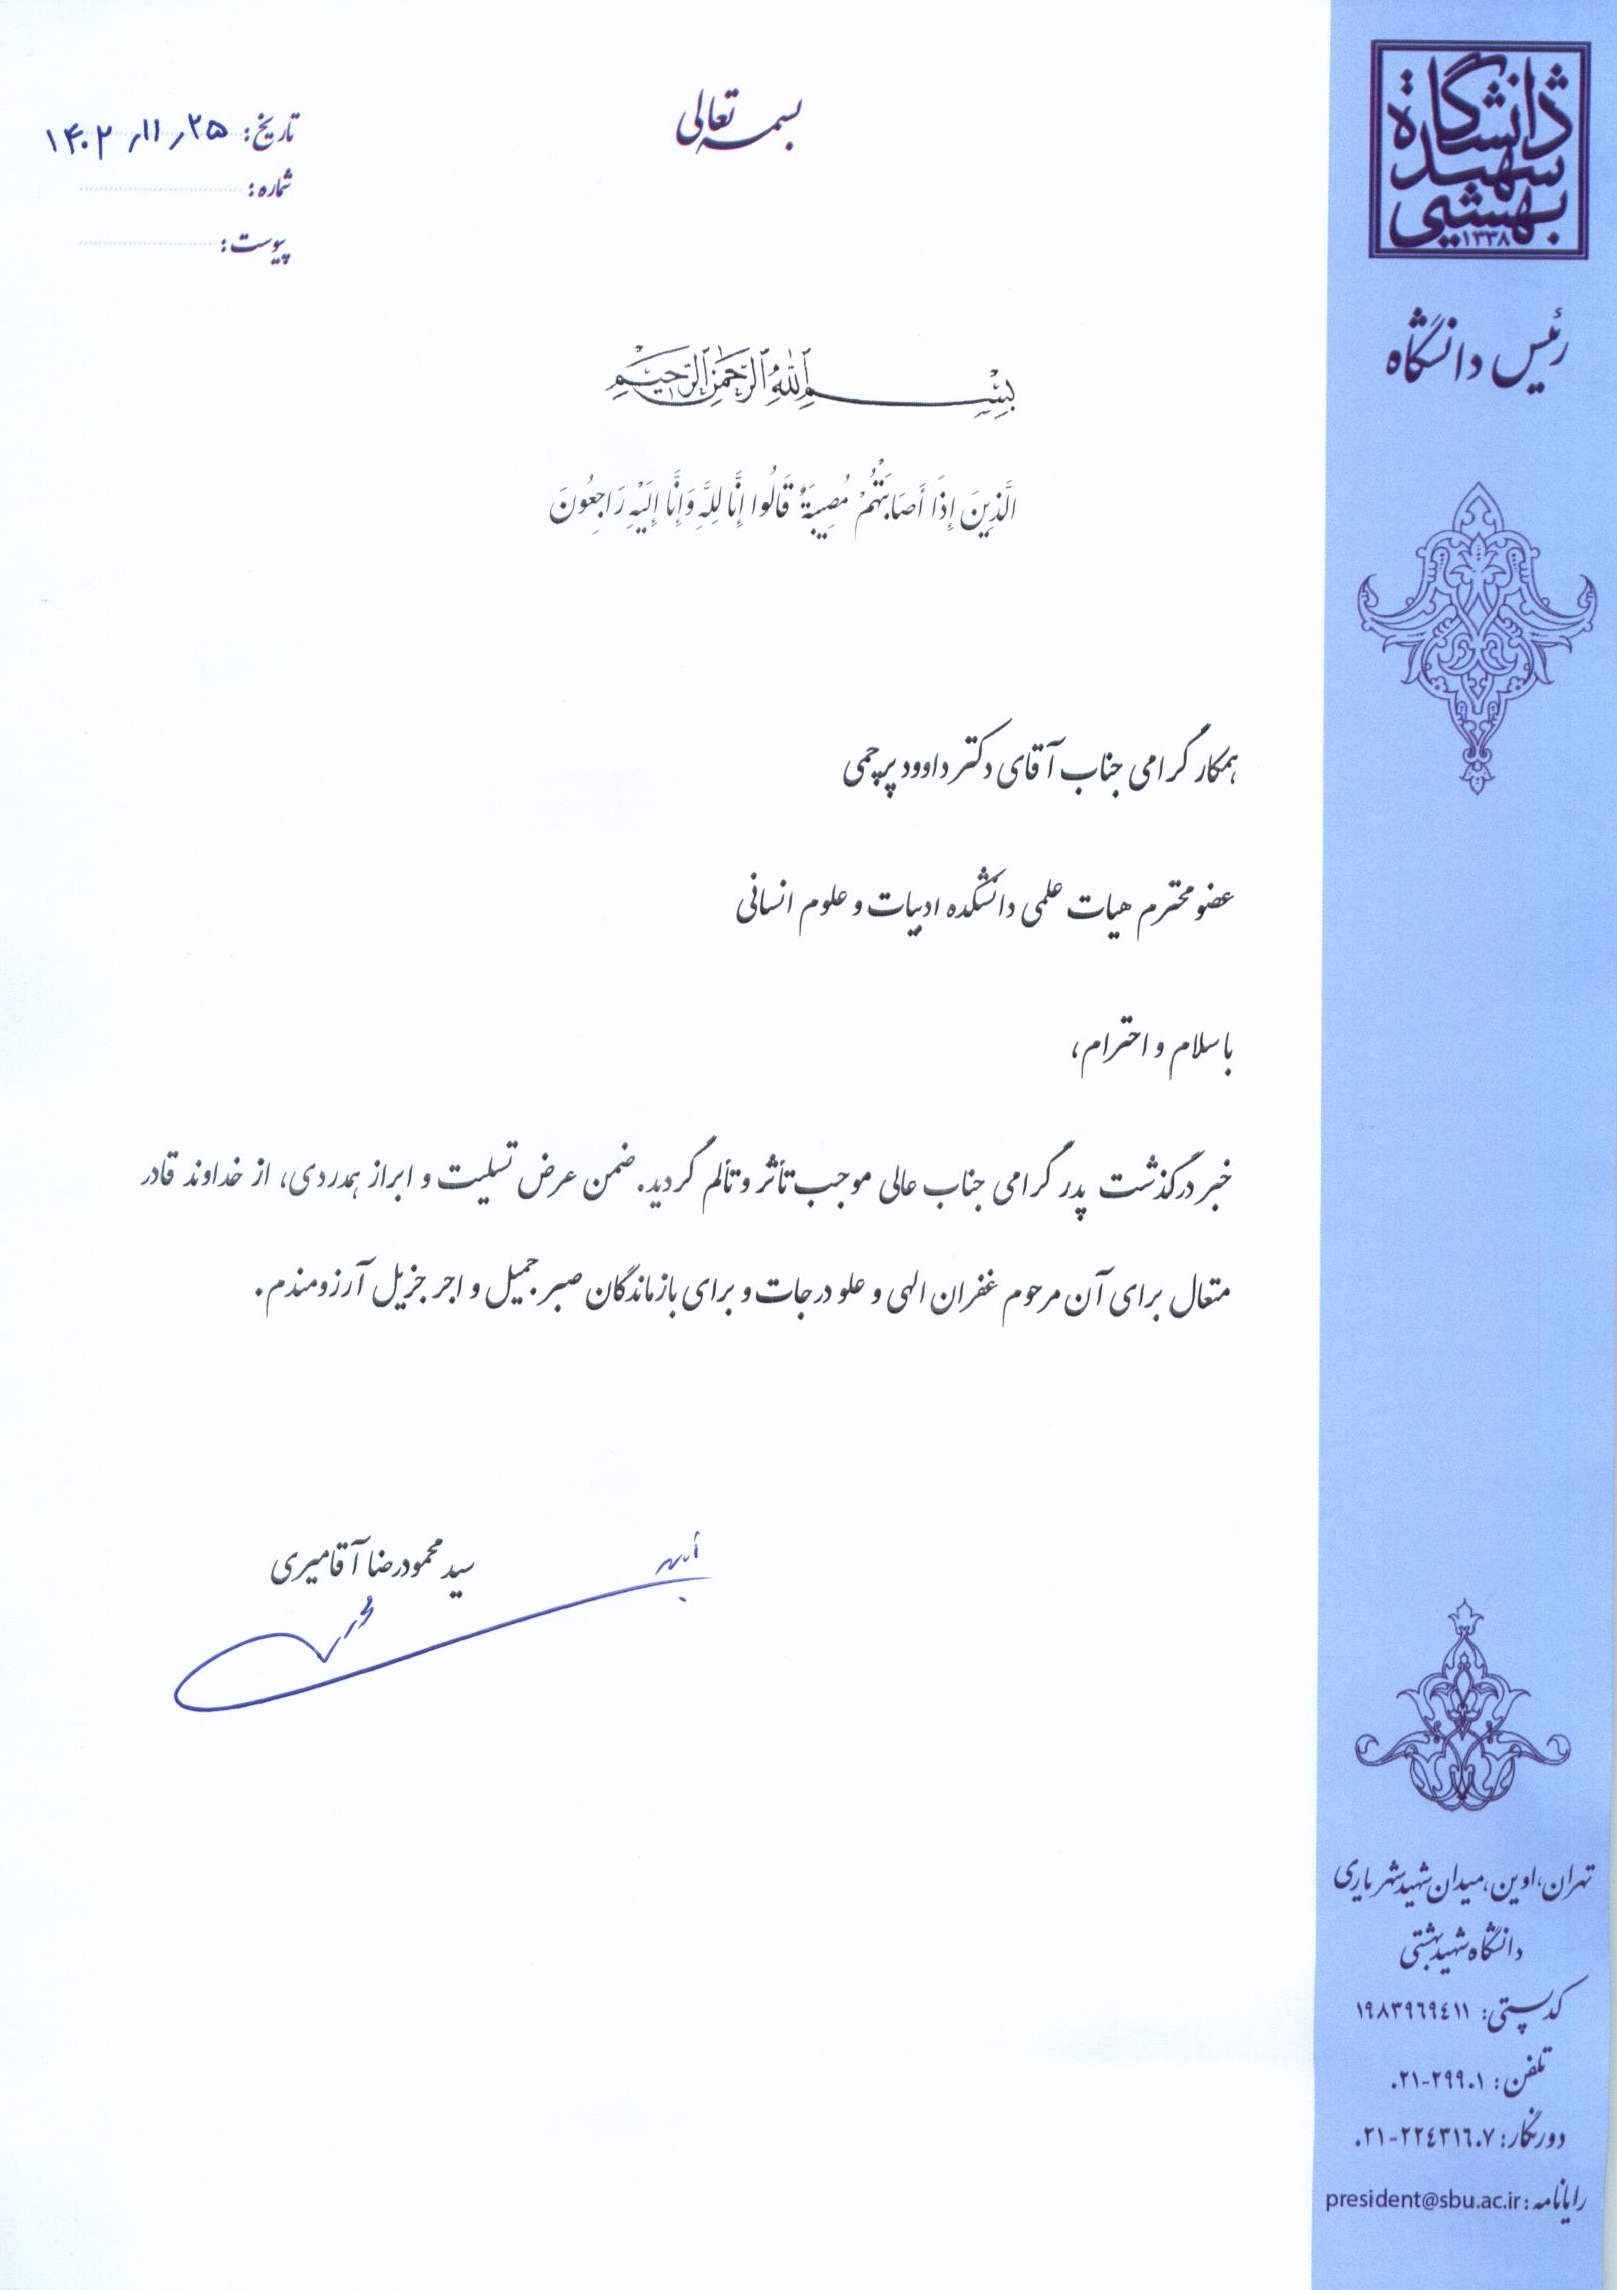 بسمه تعالی
تاریخ: ۱۴۰۲/۱۱/۲۵
شماره:
پیوست:
دانشگاه
شهید
بهشتی
۱۳۳۸
رئیس دانشگاه
بِسْمِ ٱللَّهِ ٱلرَّحْمَٰنِ ٱلرَّحِيمِ
الَّذِینَ إِذَا أَصَابَتْهُمْ مُصِیبَةٌ قَالُوا إِنَّا لِلَّهِ وَإِنَّا إِلَیْهِ رَاجِعُونَ
همکار گرامی جناب آقای دکتر داوود پرچمی
عضو محترم هیات علمی دانشکده ادبیات و علوم انسانی
با سلام و احترام،
خبر درگذشت پدر گرامی جناب عالی موجب تأثر و تألم گردید. ضمن عرض تسلیت و ابراز همدردی، از خداوند قادر
متعال برای آن مرحوم غفران الهی و علو درجات و برای بازماندگان صبر جمیل و اجر جزیل آرزومندم.
سید محمودرضا آقامیری
تهران، اوین، میدان شهید شهریاری
دانشگاه شهید بهشتی
کد پستی: ۱۹۸۳۹۶۹٤۱۱
تلفن: ۰۲۱-۲۹۹۰۱
دورنگار: ۰۲۱-۲۲٤۳۱٦۰۷
رایانامه: president@sbu.ac.ir